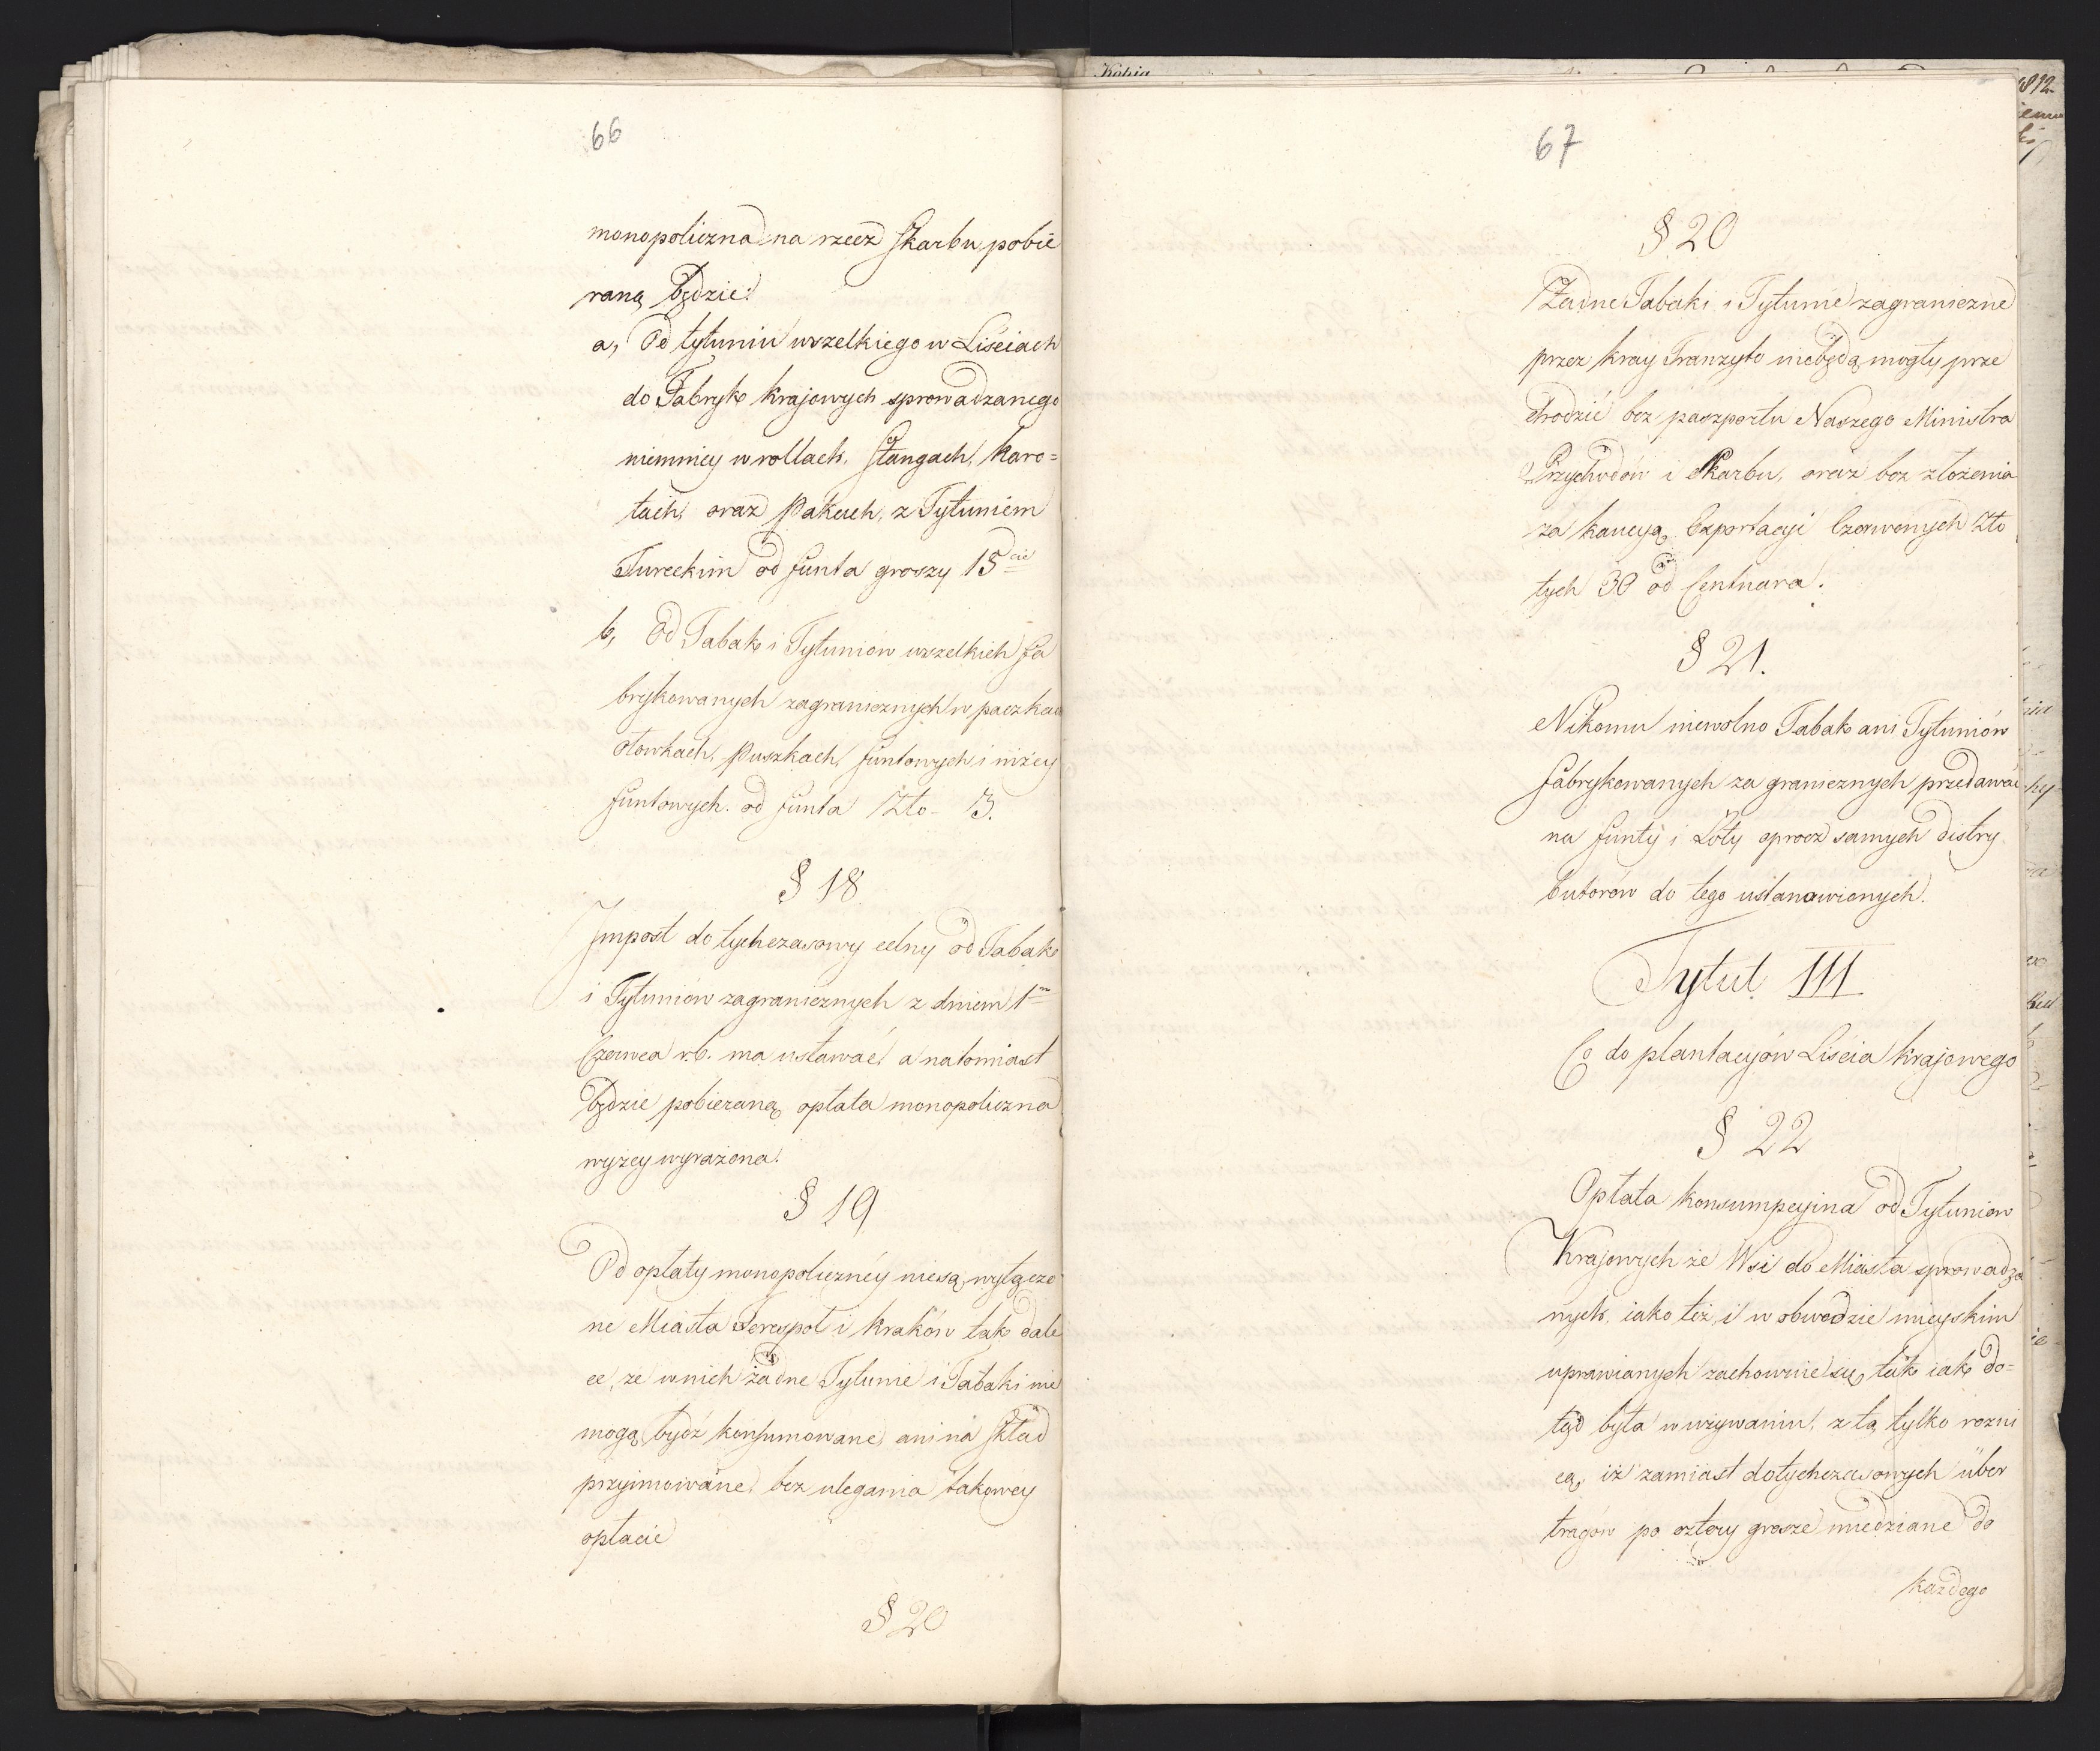 66
monopoliczna na rzecz Skarbu pobie
raną będzie:
a, Od tytuniu wszelkiego w Liściach
do Fabryk krajowych sprowadzanego
niemniey w rollach, Stangach, karo=
tach, oraz Pakach, z Tytuniem
Tureckim od funta groszy 15cie
b, Od Tabak i Tytuniów wszelkich fa
brykowanych zagranicznych w paczkach
ołowkach, puszkach, funtowych i niżey
funtowych. od funta Zło- 3.
§ 18.
Impost dotychczasowy celny od Tabak
i Tytuniow zagranicznych z dniem 1m
Czerwca r.b. ma ustawać, a natomiast
będzie pobieraną opłata monopoliczna
wyżey wyrażona.
§ 19
Od opłaty monopoliczney niesą wyłączo
ne Miasta Terespol i Kraków tak dale
ce, że w nich żadne Tytunie i Tabaki nie
mogą bydź konsumowane, ani na Skład
przyimowane, bez ulegania takowey
opłacie
§ 20
67
§ 20
Żadne Tabaki i Tytunie zagraniczne
przez kray Tranzyto niebędą mogły prze
chodzić bez paszportu Naszego Ministra
Przychodów i Skarbu, oraz bez złożenia
za kaucyą Exportacyi Czerwonych Zło
tych 30 od Centnara.
§ 21.
Nikomu niewolno Tabak ani Tytuniów
fabrykowanych za granicznych przedawać
na funty i Łoty oprocz samych distry
butorów do tego ustanowionych.
Tytuł III
Co do plantacyów Liścia krajowego
§ 22
Opłata konsumpcyina od Tytuniow
Krajowych ze Wsi do Miasta sprowadza
nych, iako też i w obwodzie mieyskim
uprawianych zachowuie się tak iak do=
tąd była w używaniu, z tą tylko rozni
cą, iż zamiast dotychczasowych über
tragów po cztery grosze miedziane do
każdego